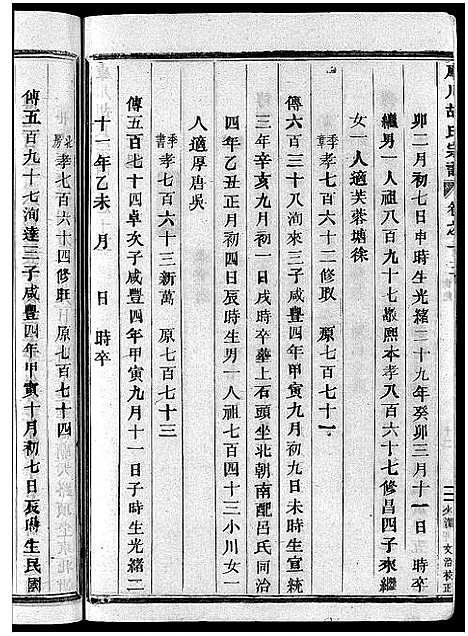 胡氏宗譜 卷之
卯二月初七日申時生光緒二十九年癸卯三月十一日 時卒
繼男一人祖八百九十七敬熙本孝八百六十七修昌四子來繼
女一人適芙蓉塘徐
季章孝七百六十二修取 原七百七十一
傳六百三十八洵來三子咸豐四年甲寅九月初九日未時生宣統
三年辛亥九月初一日戌時卒墓上石頭坐北朝南配呂氏同治
四年乙丑正月初四日辰時生男一人祖七百四十三小川女一
人適厚唐吳
季書孝七百六十三新萬 原七百七十三
傳五百七十四卓次子咸豐四年甲寅九月十一日子時生光緒二
十一年乙未 月 日 時卒
孝七百六十四修旺 原七百七十四
傳五百九十七洵達三子咸豐四年甲寅十月初七日辰時生民國
文治校正